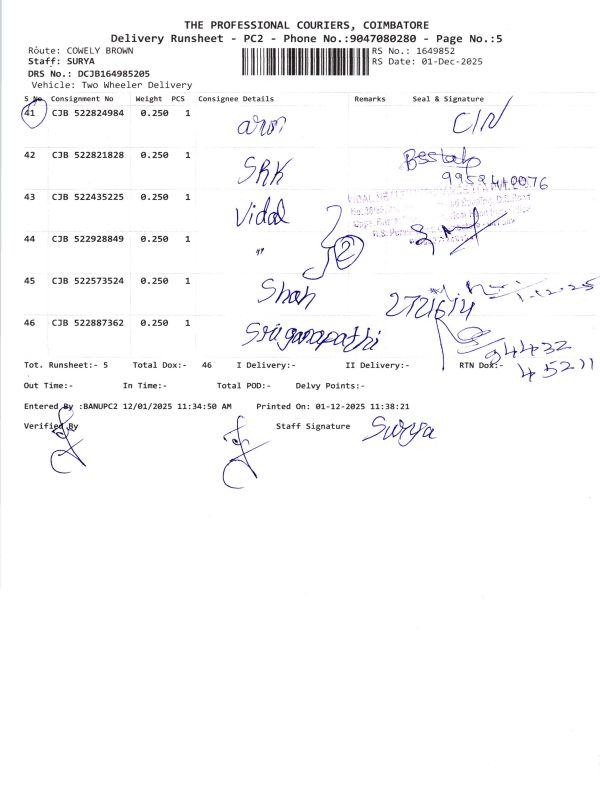 THE PROFESSIONAL COURIERS, COIMBATORE
Delivery Runsheet - PC2 - Phone No.:9047080280 - Page No.:5
Route: COWELY BROWN
RS No.: 1649852
Staff: SURYA
RS Date: 01-Dec-2025
DRS No.: DCJB164985205
Vehicle: Two Wheeler Delivery
S No Consignment No Weight PCS Consignee Details Remarks Seal & Signature
41 CJB 522824984 0.250 1 C/N
42 CJB 522821828 0.250 1 SRK
43 CJB 522435225 0.250 1 Vidal
44 CJB 522928849 0.250 1 " 2
45 CJB 522573524 0.250 1 Shah 1.12.25
46 CJB 522887362 0.250 1 Sri ganapathi
94432
45211
Tot. Runsheet:- 5 Total Dox:- 46 I Delivery:- II Delivery:- RTN Dox:-
Out Time:- In Time:- Total POD:- Delvy Points:-
Entered By :BANUPC2 12/01/2025 11:34:50 AM Printed On: 01-12-2025 11:38:21
Verified By Staff Signature Surya